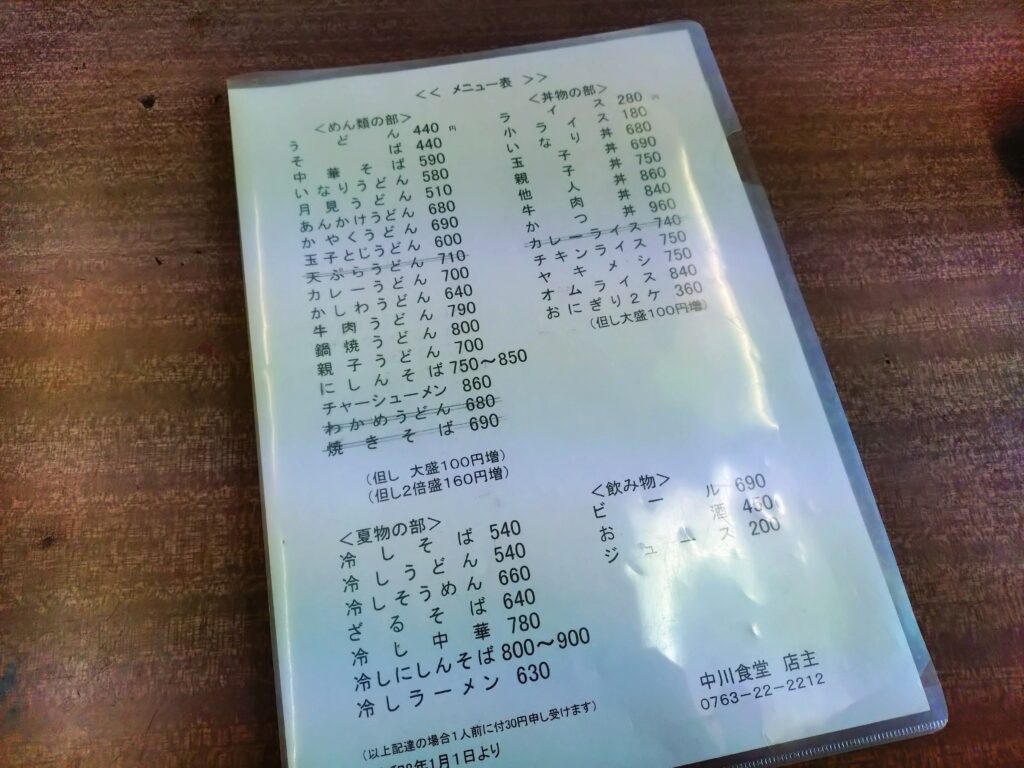 << メニュー表 >>
<めん類の部>
うどん 440円
そば 440
中華そば 590
いなりうどん 580
月見うどん 510
あんかけうどん 680
かやくうどん 690
玉子とじうどん 600
天ぷらうどん 710
カレーうどん 700
かしわうどん 640
牛肉うどん 790
鍋焼うどん 800
親子うどん 700
にしんそば 750～850
チャーシューメン 860
わかめうどん 680
焼きそば 690
(但し 大盛100円増)
(但し2倍盛160円増)
<夏物の部>
冷しそば 540
冷しうどん 540
冷しそうめん 660
ざるそば 640
冷し中華 780
冷しにしんそば 800～900
冷しラーメン 630
(以上配達の場合1人前に付30円申し受けます)
年1月1日より
<丼物の部>
ライス 280円
小ライス 180
いなり丼 680
玉子丼 690
親子丼 750
他人丼 860
牛肉丼 840
かつ丼 960
カレーライス 740
チキンライス 750
ヤキメシ 750
オムライス 840
おにぎり2ケ 360
(但し大盛100円増)
<飲み物>
ビール 690
お酒 450
ジュース 200
中川食堂 店主
0763-22-2212